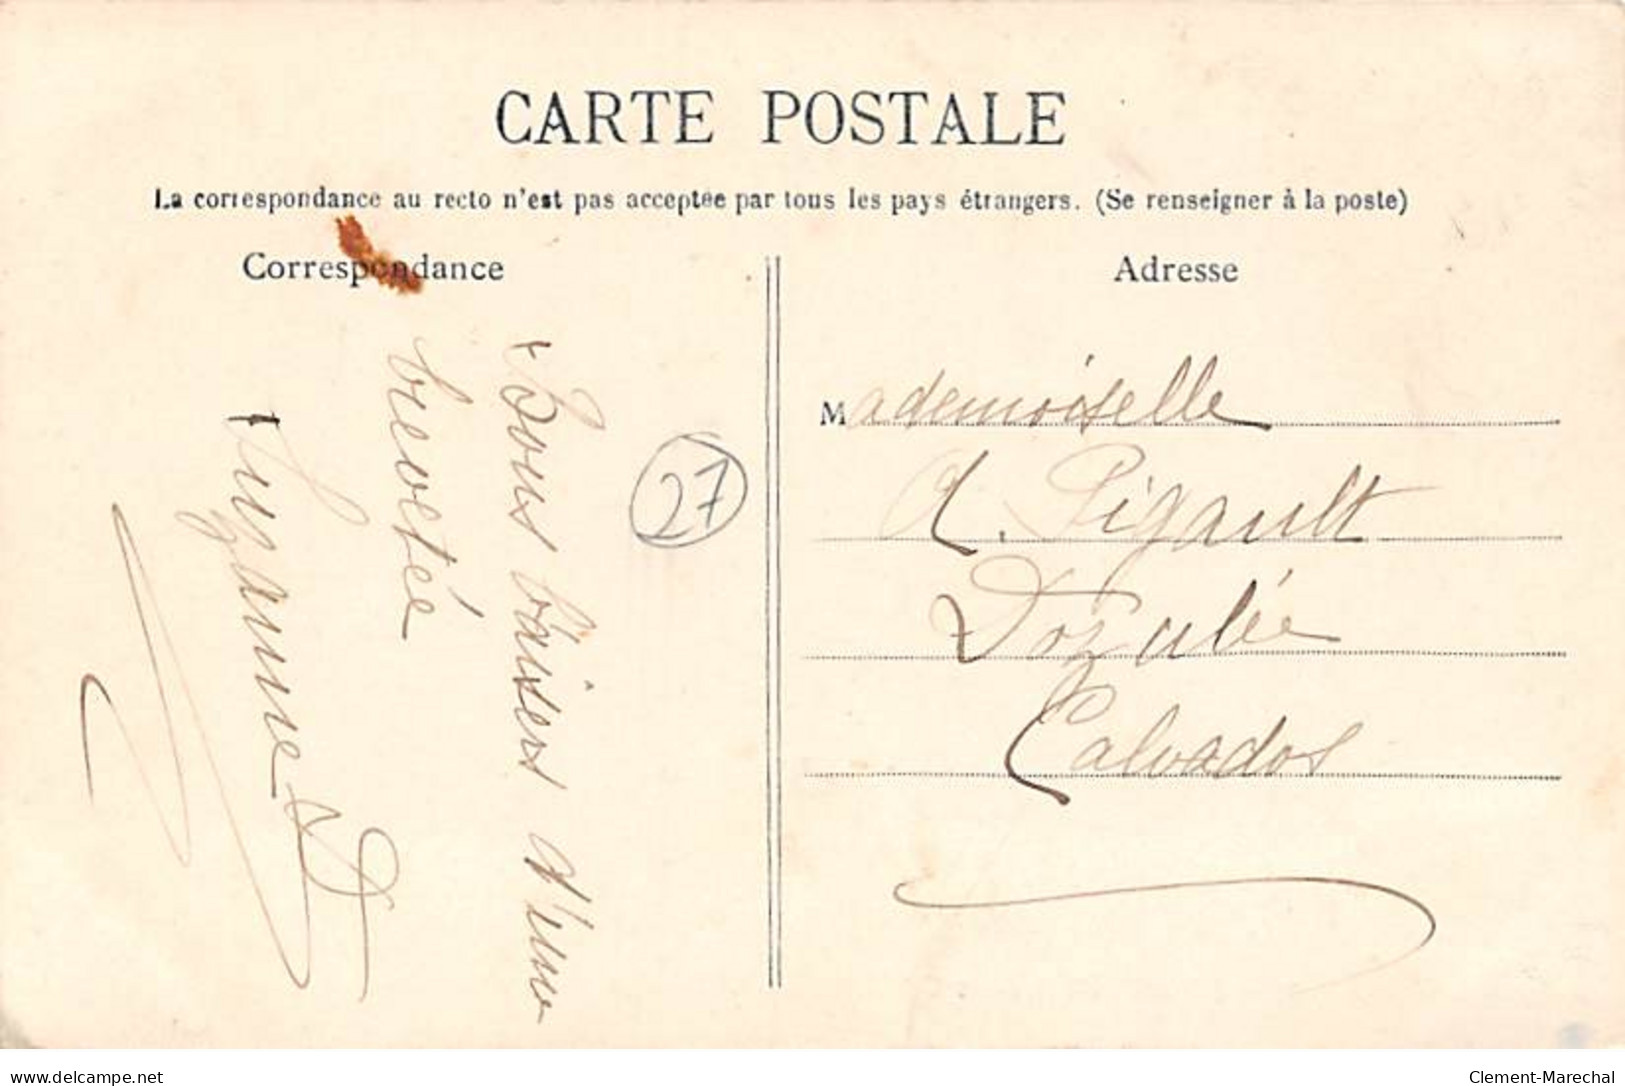 CARTE POSTALE
La correspondance au recto n'est pas acceptée par tous les pays étrangers. (Se renseigner à la poste)
Correspondance
Bons baisers d'une
brevetée
Suzanne D
27
Adresse
Mademoiselle
A. Pigault
Dozulé
Calvados
delcampe.net
Clement-Marechal